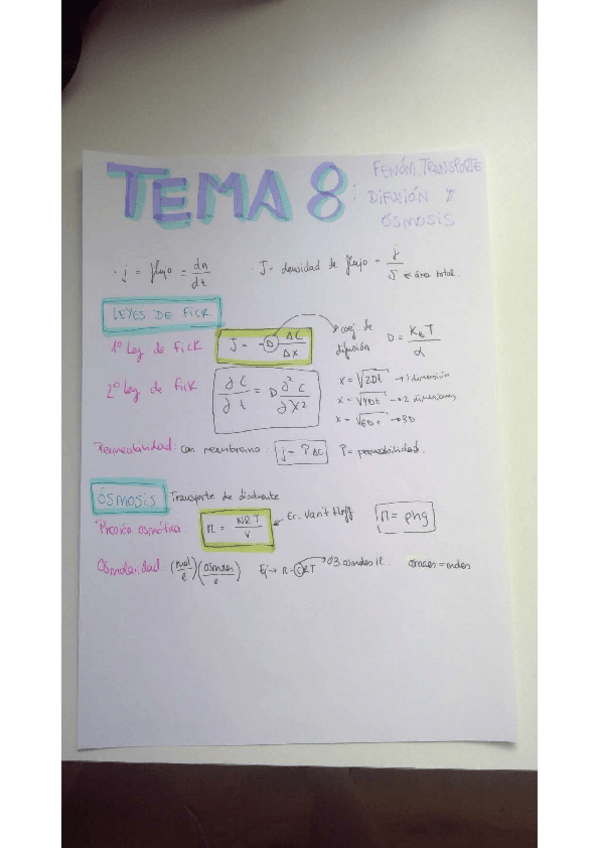 TEMA 8: FENÓM. TRANSPORTE
DIFUSIÓN Y
ÓSMOSIS
· j = flujo = dn/dt · J = densidad de flujo = j/S ← área total.
LEYES DE FICK
1º Ley de Fick J = -D ΔC/Δx → coef. de difusión D = K_B T/α
2º Ley de Fick ∂C/∂t = D ∂²C/∂X² x = √2Dt → 1 dimensión
x = √4Dt → 2 dimensiones
x = √6Dt → 3D
Permeabilidad: con membrana: j = P ΔC P = permeabilidad.
ÓSMOSIS Transporte de disolvente
Presión osmótica: π = NRT/V ← Ec. Van't Hoff π = ρhg
Osmolaridad: (mol/l) (osmoles/l) Ej → π = CRT → 0'3 osmoles/l. osmoles = moles